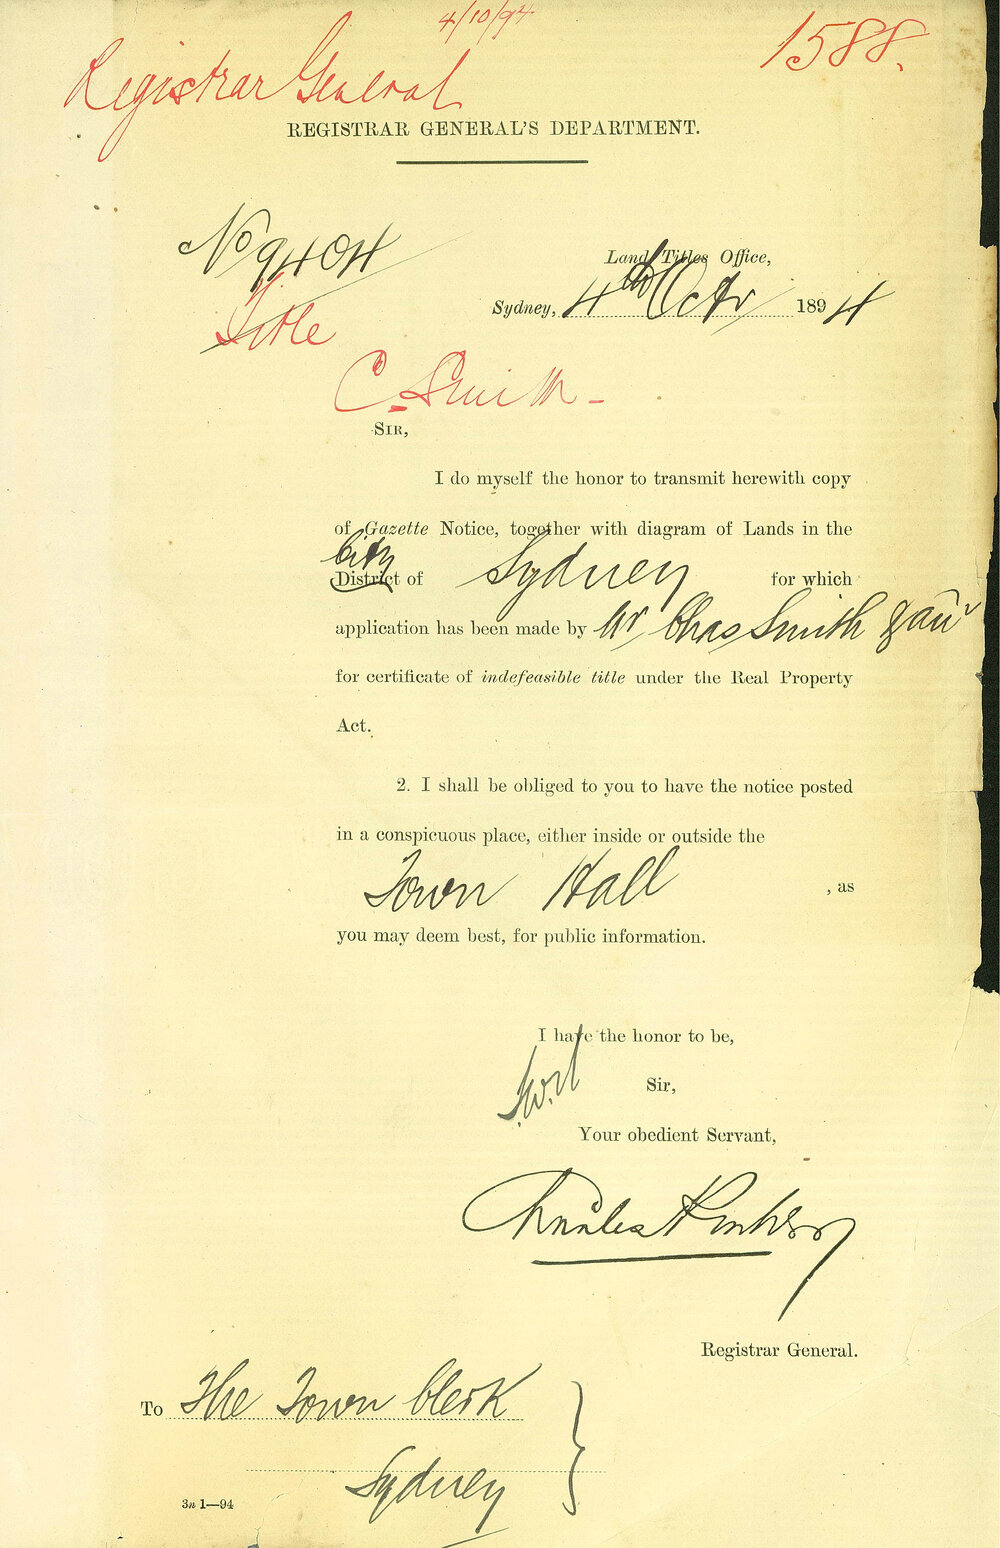 4/10/94.
1588.
Registrar General
REGISTRAR GENERAL'S DEPARTMENT.
No 9404
Land Titles Office,
Sydney, 4th Octr 1894
Title
C. Smith
SIR,
I do myself the honor to transmit herewith copy
of Gazette Notice, together with diagram of Lands in the
City
District of Sydney for which
application has been made by Chas Smith & anr
for certificate of indefeasible title under the Real Property
Act.
2. I shall be obliged to you to have the notice posted
in a conspicuous place, either inside or outside the
Town Hall , as
you may deem best, for public information.
I have the honor to be,
Sir,
Your obedient Servant,
Charles
Registrar General.
To The Town Clerk
Sydney
3n 1—94